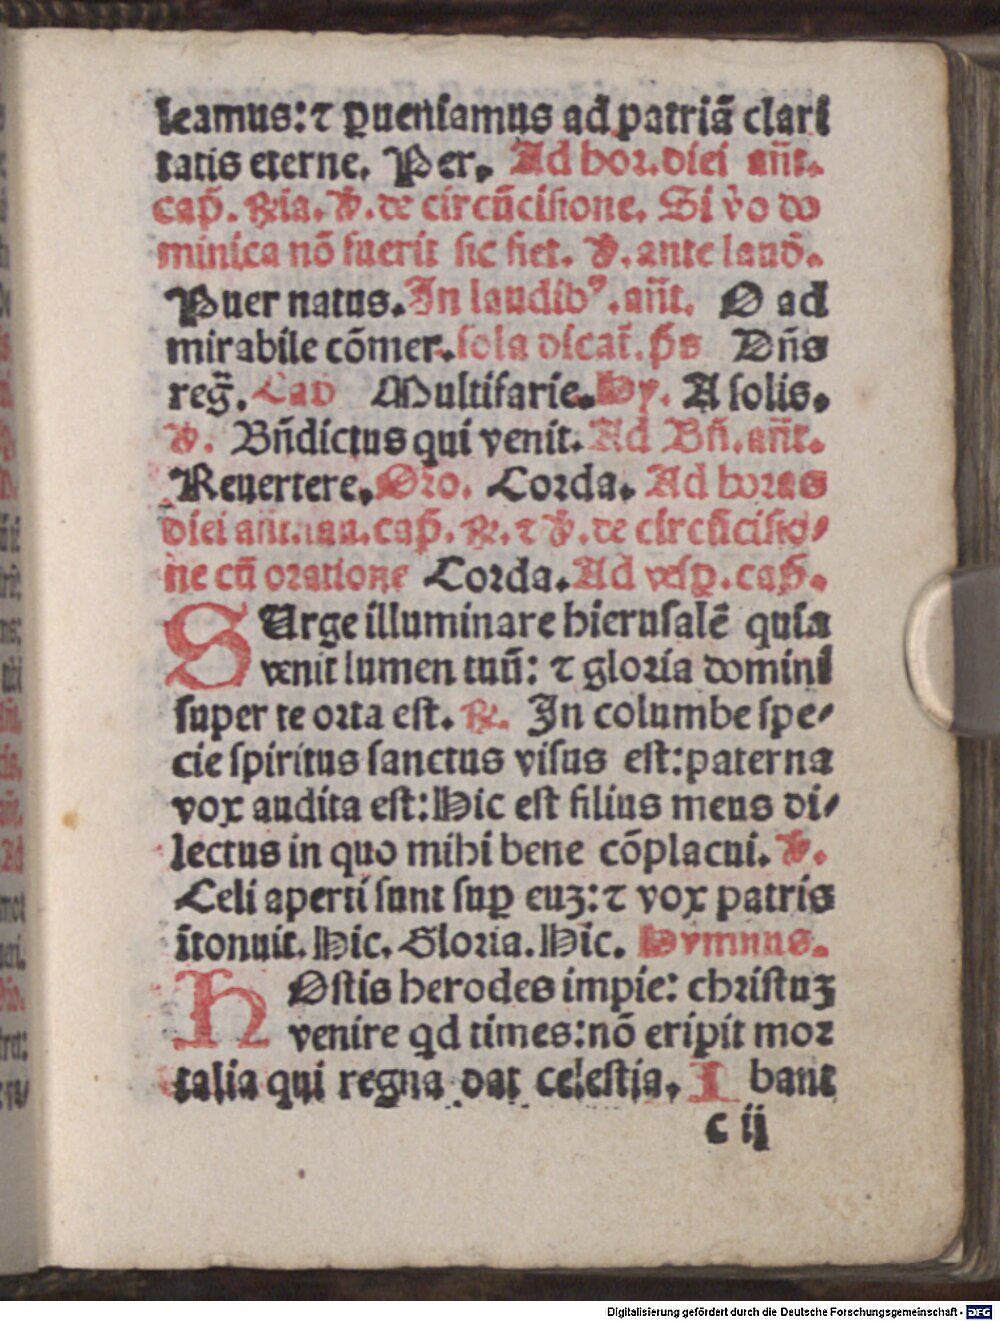 leamus: ⁊ ꝑueniamus ad patriã clari
tatis eterne. Per. Ad hor. diei añt.
cap̃. ℞ia. ℣. de circũcisione. Si v̓o do
minica nõ fuerit sic fiet. ℣. ante laud̃.
Puer natus. In laudib⁹. añt. O ad
mirabile cõmer. sola dicat̃. p̃s Dñs
reg̃. Cap Multifarie. Hy. A solis.
℣. Bñdictus qui venit. Ad Bñ. añt.
Reuertere. Oꝛo. Coꝛda. Ad hoꝛas
diei añt. cap̃. ℞. ⁊ ℣. de circũcisio⸗
ne cũ oꝛatione Coꝛda. Ad vesꝑ. cap̃.
SUrge illuminare hierusalẽ quia
venit lumen tuũ: ⁊ gloꝛia domini
super te oꝛta est. ℞. In columbe spe⸗
cie spiritus sanctus visus est: paterna
vox audita est: Hic est filius meus di⸗
lectus in quo mihi bene cõplacui. ℣.
Celi aperti sunt suꝑ euȝ: ⁊ vox patris
ĩtonuit. Hic. Gloꝛia. Hic. Hymnus.
HOstis herodes impie: chꝛistuȝ
venire qd times: nõ eripit moꝛ
talia qui regna dat celestia. I bant
c ij
Digitalisierung gefördert durch die Deutsche Forschungsgemeinschaft - DFG